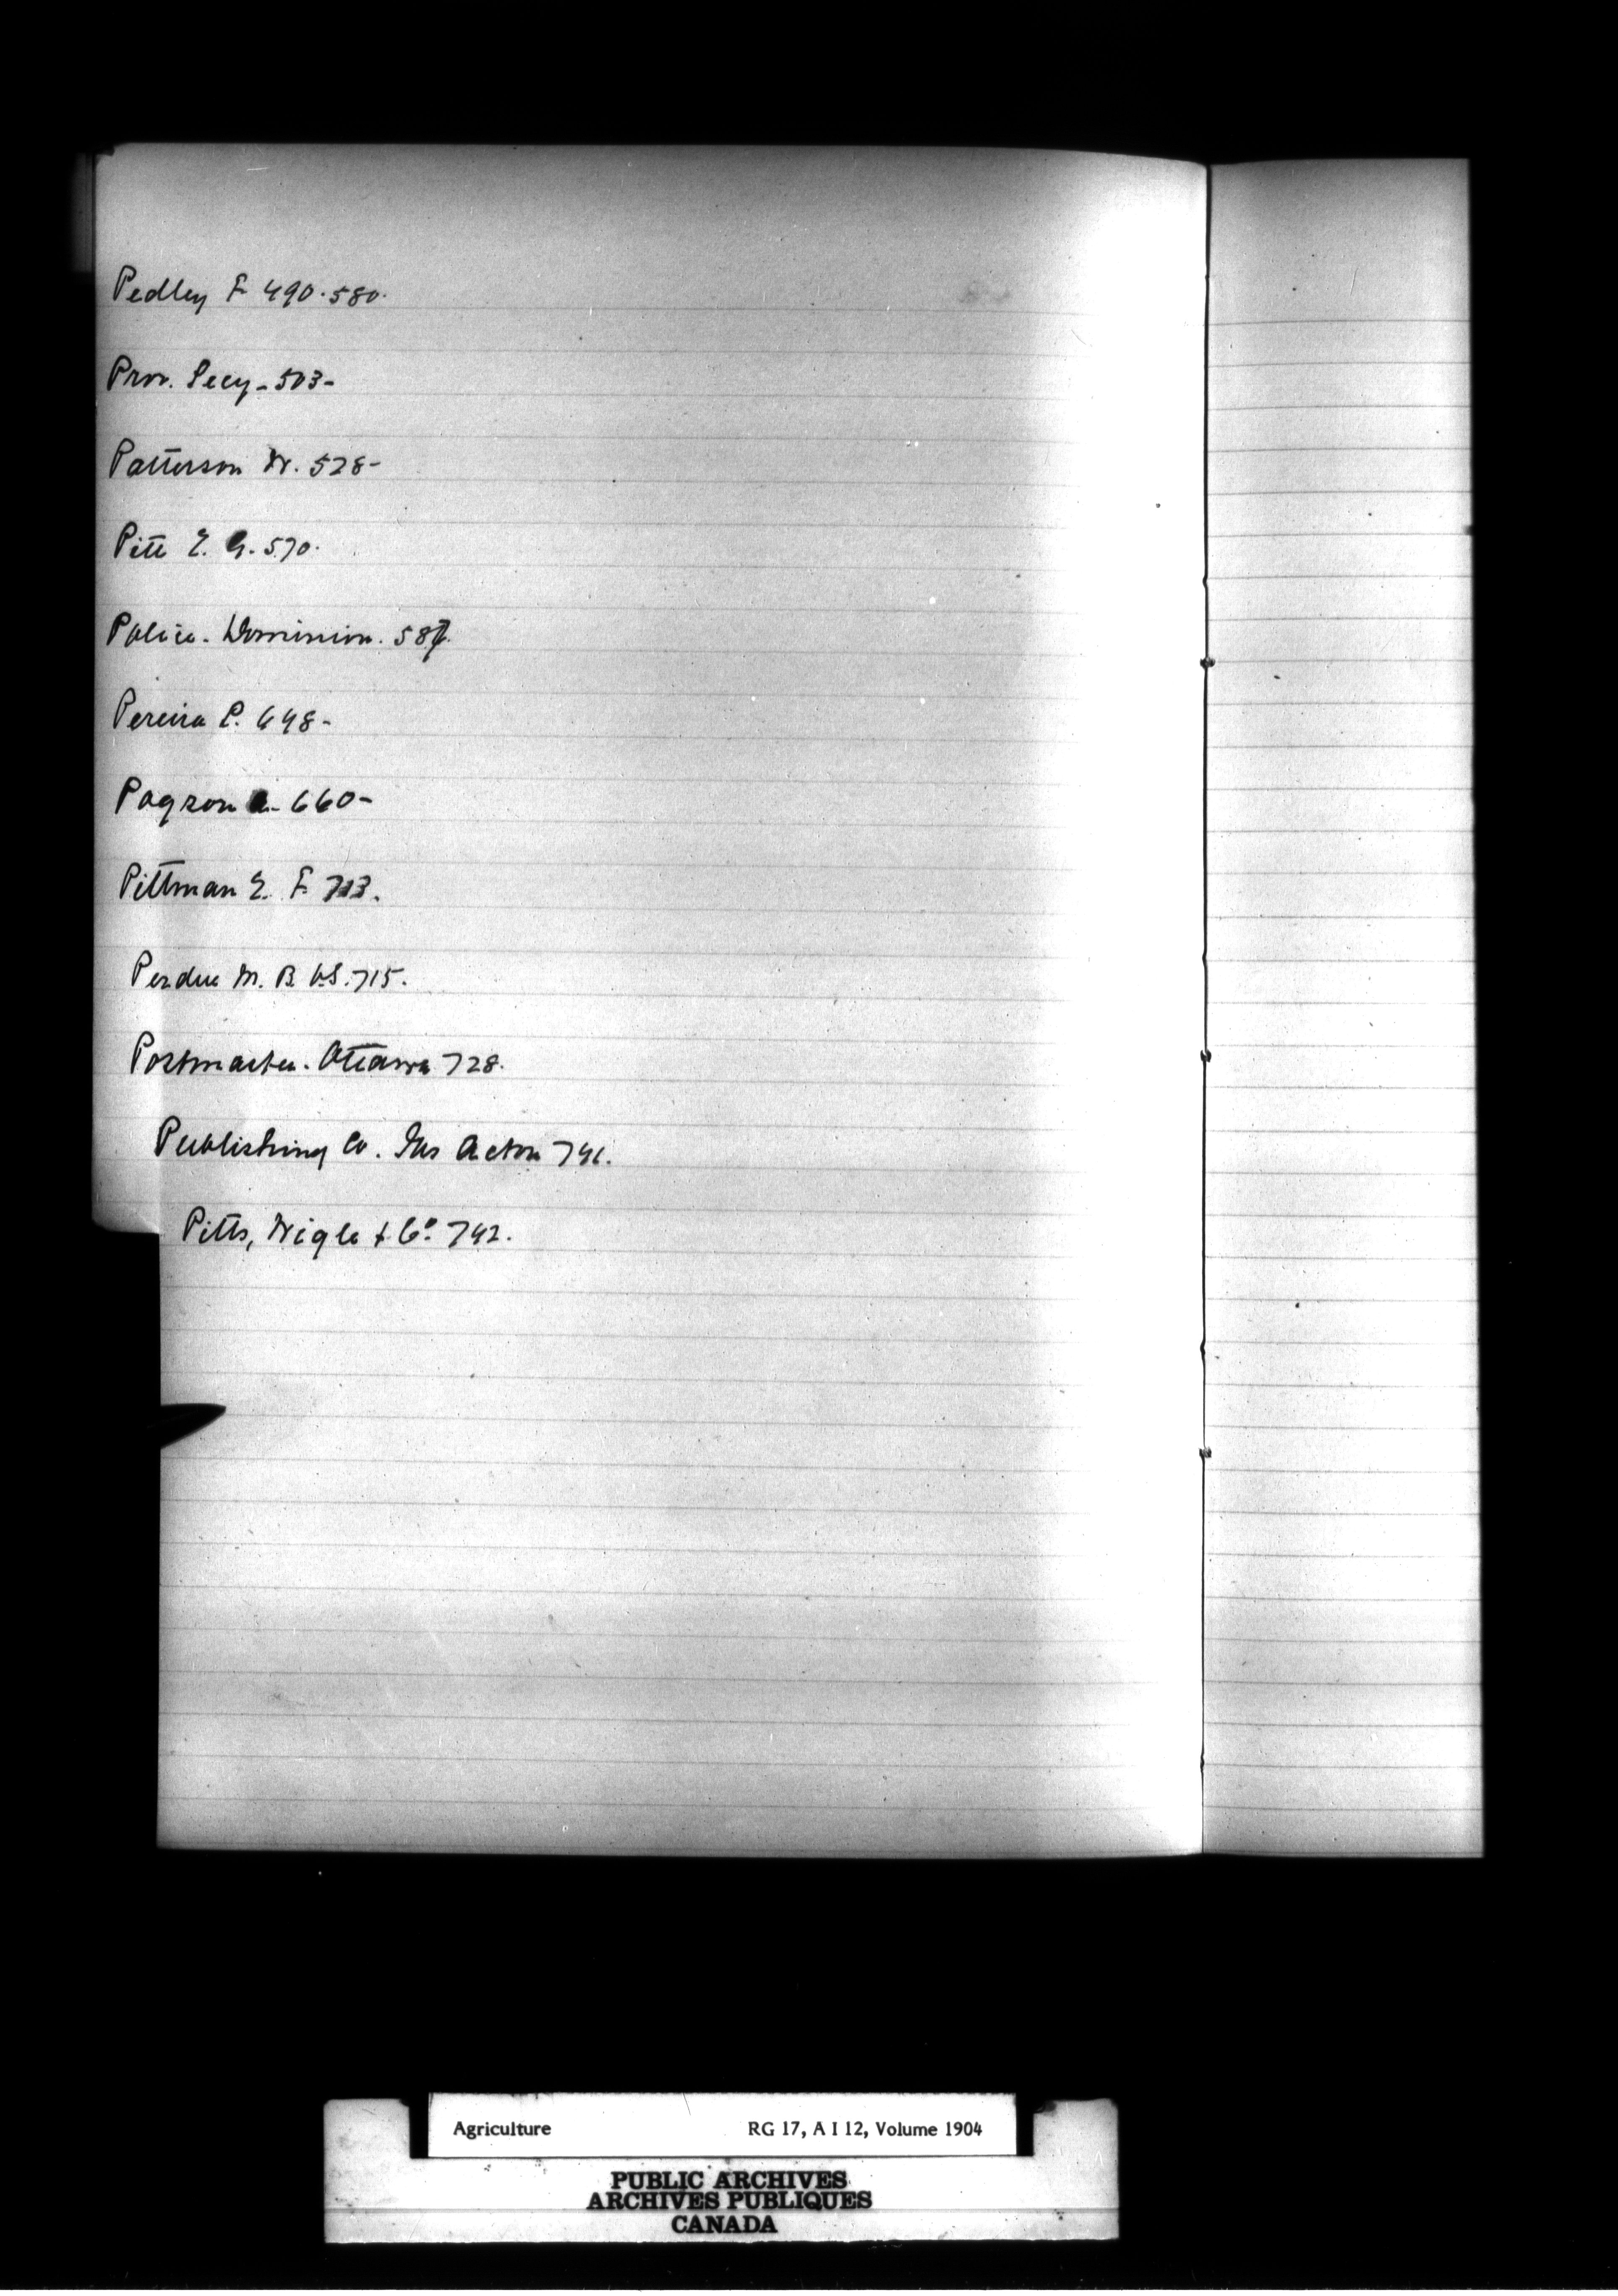 Pedley F 490.580.
Prov. Secy - 503-
Patterson W. 528-
Pitt E. G. 570.
Police. Dominion. 587.
Pereira P. 648-
660-
Pittman E. F 713.
Perdue M. B. V.S. 715.
Postmaster. Ottawa 728.
Publishing Co. The Acton 741.
Pitts, Wigle & Co. 742.
Agriculture RG 17, A I 12, Volume 1904
PUBLIC ARCHIVES
ARCHIVES PUBLIQUES
CANADA